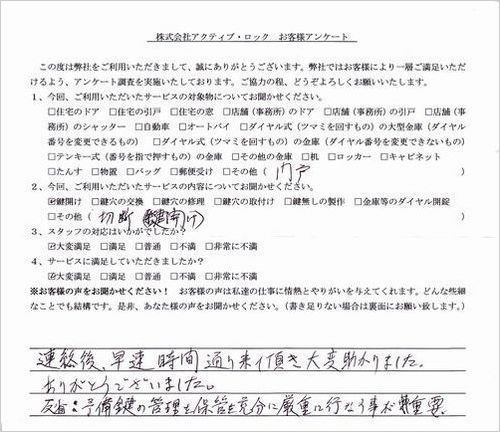 株式会社アクティブ・ロック　お客様アンケート
この度は弊社をご利用いただきまして、誠にありがとうございます。弊社ではお客様により一層ご満足いただ
けるよう、アンケート調査を実施いたしております。ご協力の程、どうぞよろしくお願いいたします。
1、今回、ご利用いただいたサービスの対象物についてお聞かせください。
□住宅のドア　□住宅の引戸　□住宅の窓　□店舗（事務所）のドア　□店舗（事務所）の引戸　□店舗（事
務所）のシャッター　□自動車　□オートバイ　□ダイヤル式（ツマミを回すもの）の大型金庫（ダイヤル
番号を変更できるもの）　□ダイヤル式（ツマミを回すもの）の金庫（ダイヤル番号を変更できないもの）
□テンキー式（番号を指で押すもの）の金庫　□その他の金庫　□机　□ロッカー　□キャビネット
□たんす　□物置　□バッグ　□郵便受け　□その他（門戸
2、今回、ご利用いただいたサービスの内容についてお聞かせください。
☑鍵開け　□鍵穴の交換　□鍵穴の修理　□鍵穴の取付け　□鍵無しの製作　□金庫等のダイヤル開錠
□その他（切断（鍵開け）
3、スタッフの対応はいかがでしたか？
☑大変満足　□満足　□普通　□不満　□非常に不満
4、サービスに満足していただきましたか？
☑大変満足　□満足　□普通　□不満　□非常に不満
※お客様の声をお聞かせください！　お客様の声は私達の仕事に情熱とやりがいを与えてくれます。どんな些細
なことでも結構です。是非、あなた様の声をお聞かせください。（書き足りない場合は裏面にお願い致します。）
連絡後、早速時間通り来て頂き大変助かりました。
ありがとうございました。
反省：予備鍵の管理を保管を充分に厳重に行なう事が重要